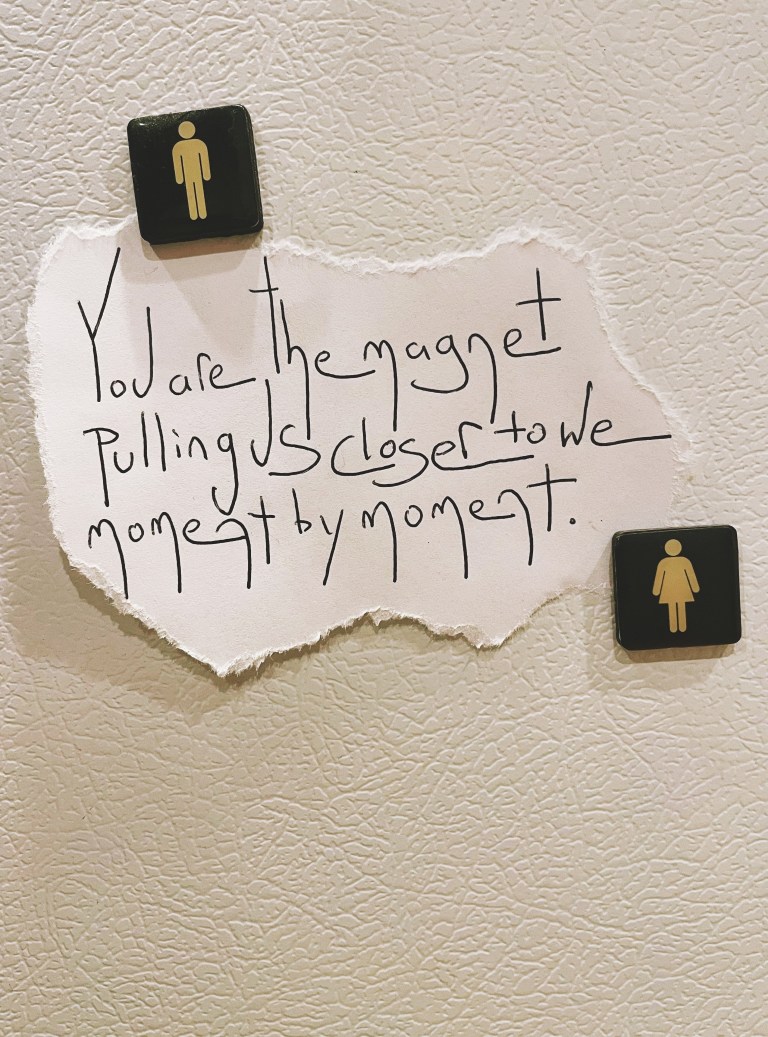 You are the magnet
pulling us closer to we
moment by moment.